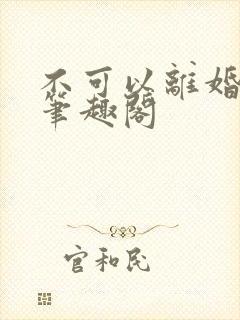 不可以離婚
筆趣閣
官和民